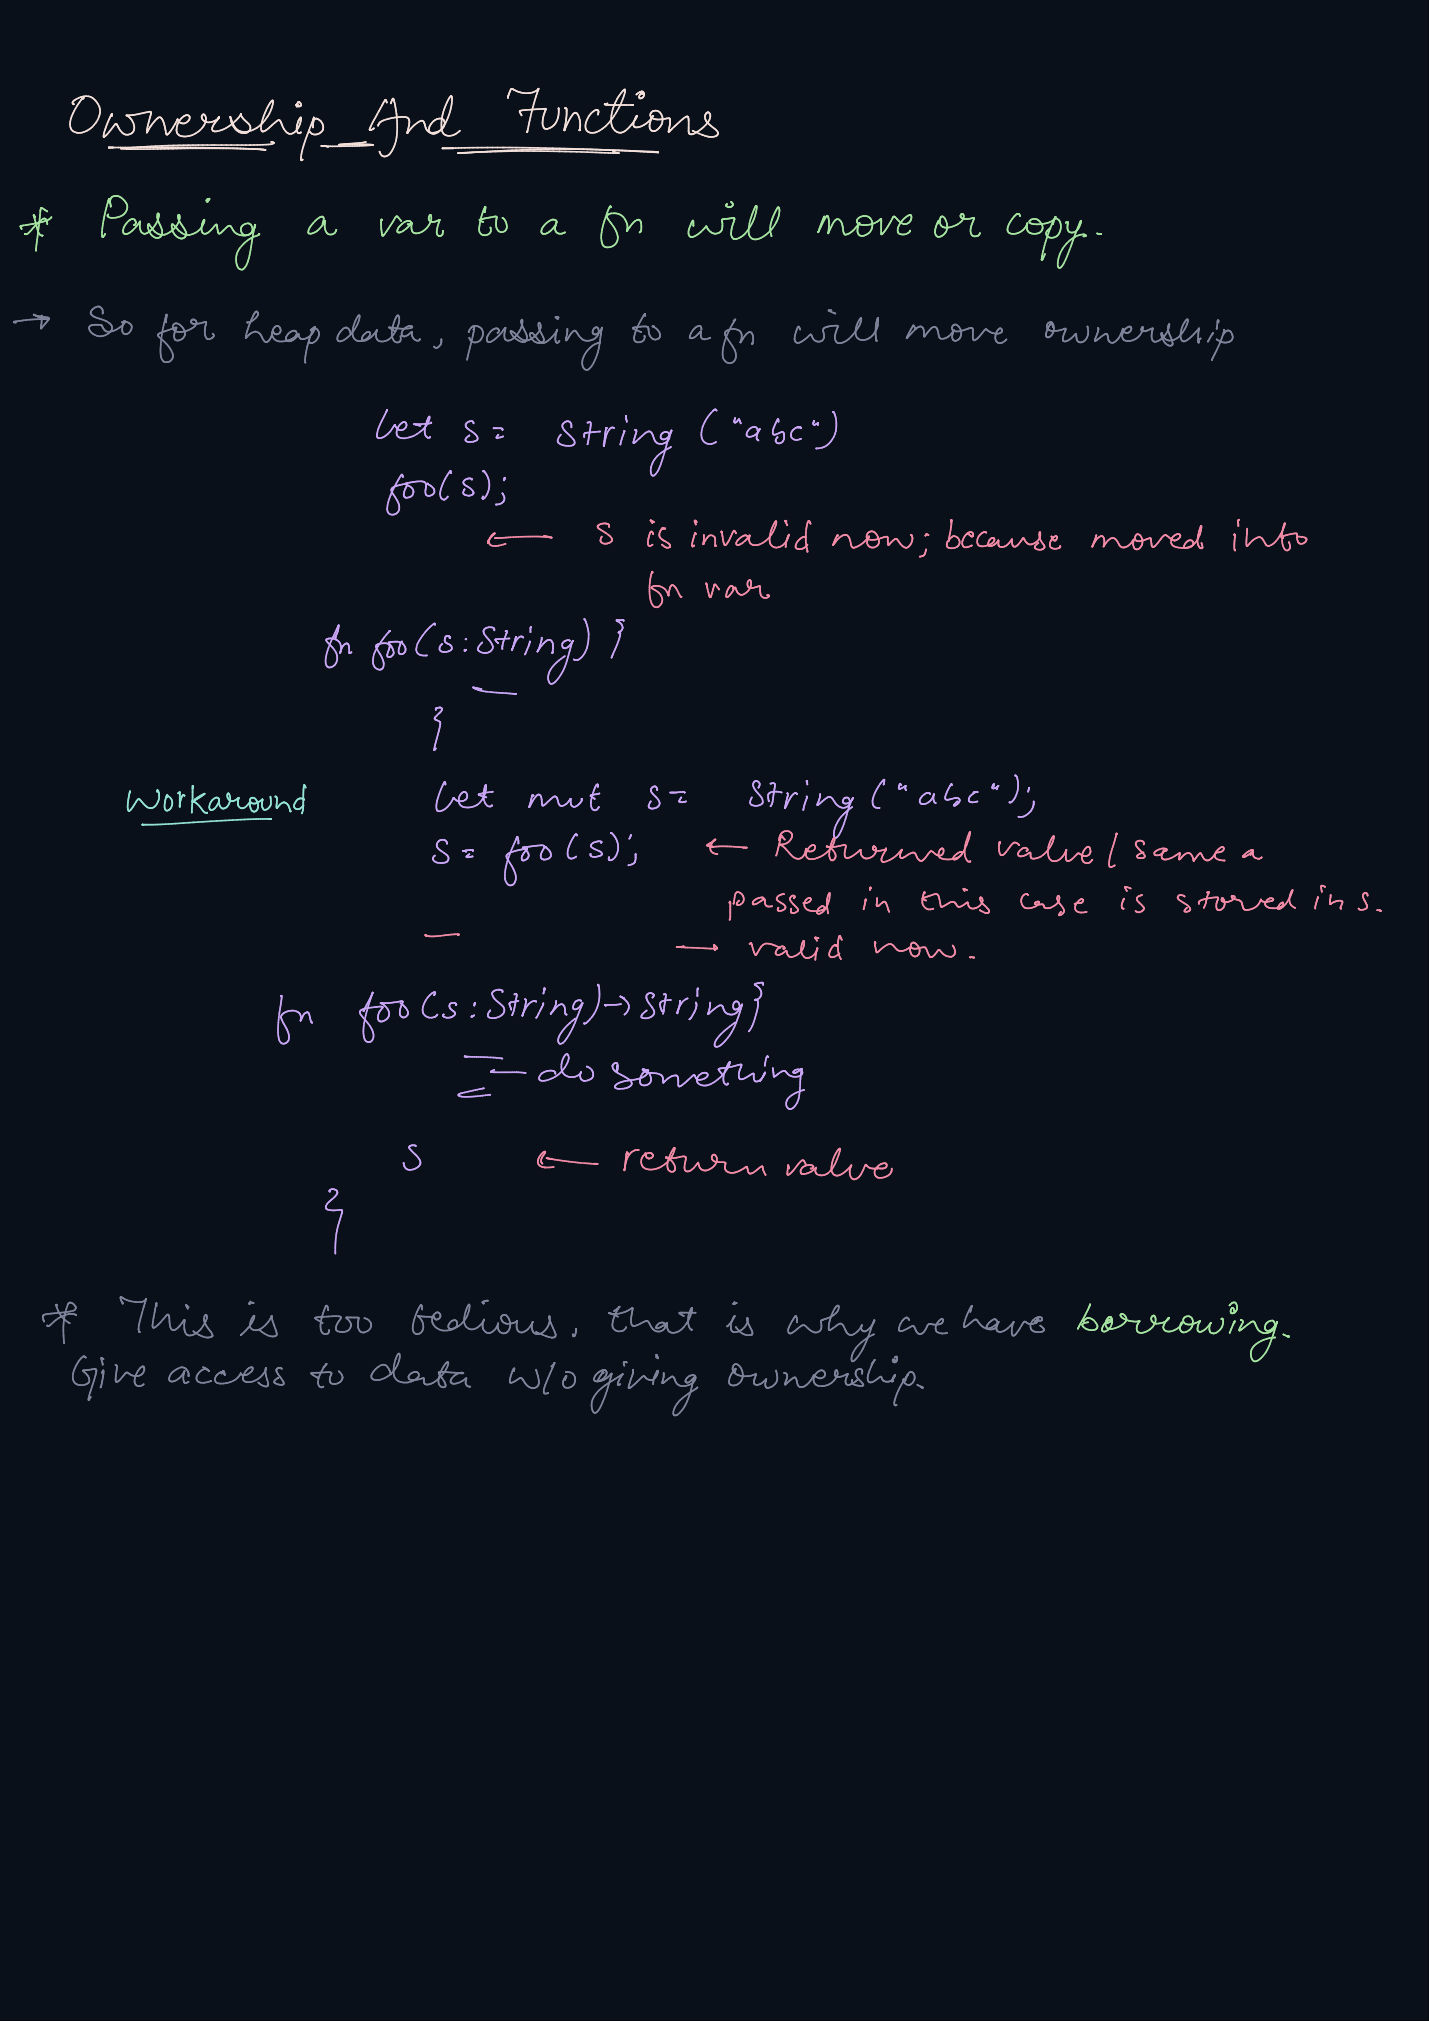 Ownership And Functions
* Passing a var to a fn will move or copy.
→ So for heap data, passing to a fn will move ownership
let s = String ("abc")
foo(s);
← s is invalid now; because moved into
fn var
fn foo(s: String) }
}
Workaround
let mut s = String ("abc");
s = foo(s);
← Returned value / same a
passed in this case is stored in s.
→ valid now.
fn foo(s: String) → String }
do something
s ← return value
}
* This is too tedious, that is why we have borrowing.
Give access to data w/o giving ownership.